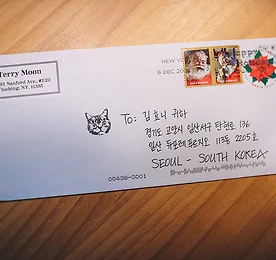 Terry Moon
Sanford Ave., #2E2
Flushing, NY. 11355
NEW YO
6 DEC 20
To: 김효니 귀하
경기도 고양시 일산서구 탄현로 136
일산 두산위브 113동 2205호
SEOUL - SOUTH KOREA
00438-0001